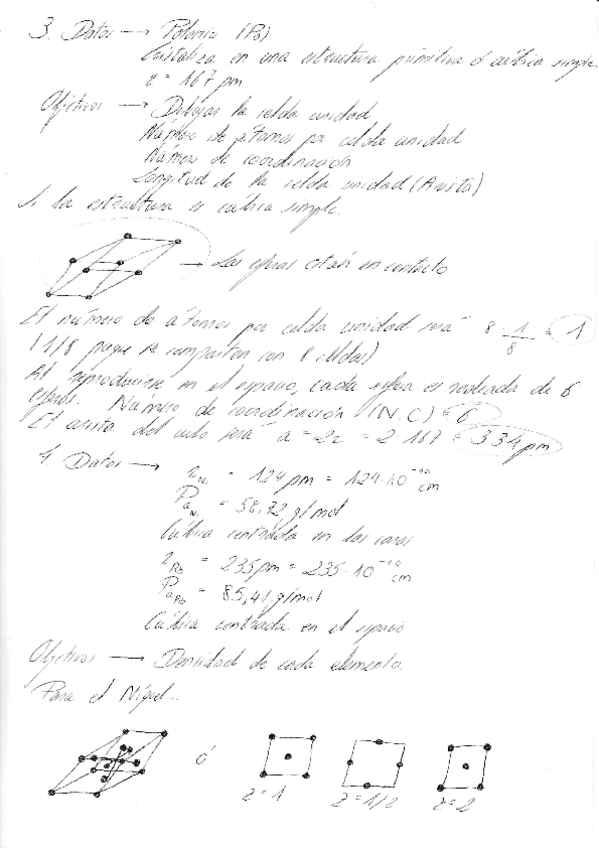 3. Datos → Polonio (Po)
Cristaliza en una estructura primitiva o cúbica simple.
r = 167 pm
Objetivos → Dibujar la celda unidad
Número de átomos por celda unidad
Número de coordinación
Longitud de la celda unidad (Arista)
Si la estructura es cúbica simple.
→ Las esferas están en contacto
El número de átomos por celda unidad será 8 · 1/8 = 1
(1/8 porque se comparten con 8 celdas)
Al reproducirse en el espacio, cada esfera es rodeada de 6
esferas. Número de coordinación (N.C) = 6
El arista del cubo será a = 2r = 2·167 = 334 pm
4. Datos →
r Ni = 124 pm = 124·10⁻¹⁰ cm
Pa Ni = 58,72 g/mol
Cúbica centrada en las caras
r Rb = 235 pm = 235·10⁻¹⁰ cm
Pa Rb = 85,41 g/mol
Cúbica centrada en el espacio
Objetivos → Densidad de cada elemento.
Para el Níquel...
ó
z=1 z=1/2 z=2